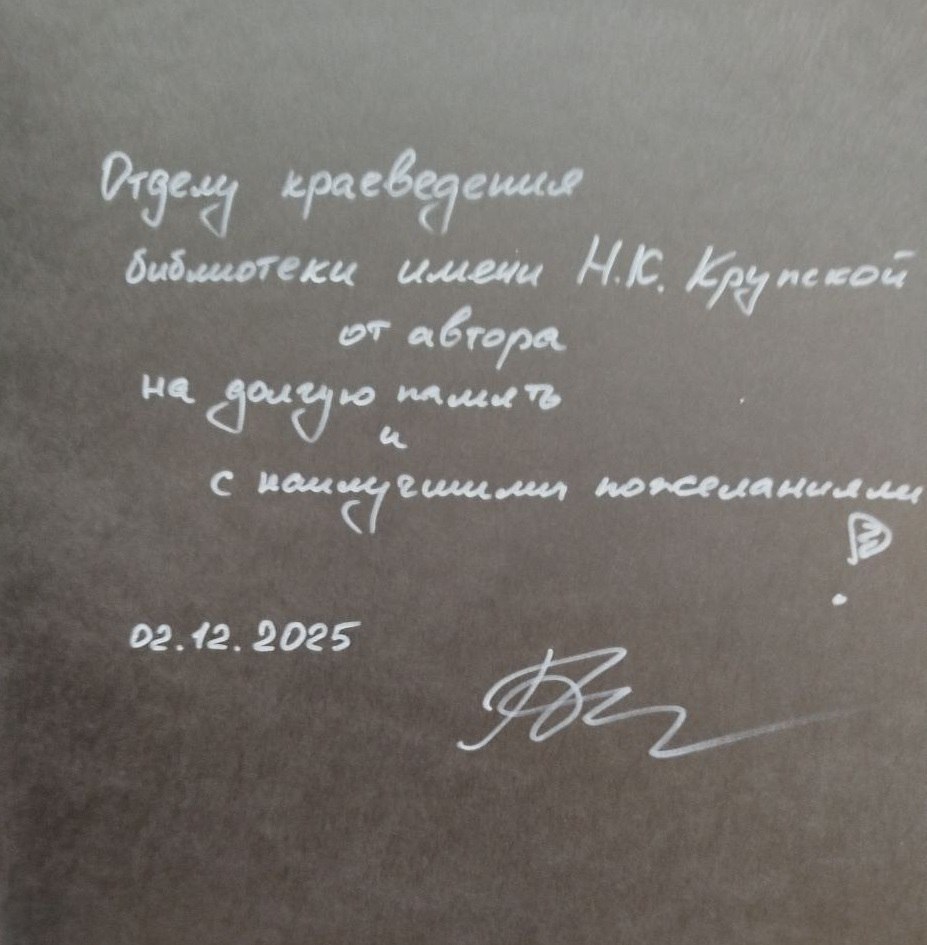 Отделу краеведения
библиотеки имени Н.К. Крупской
от автора
на долгую память
и
с наилучшими пожеланиями
!
02.12.2025